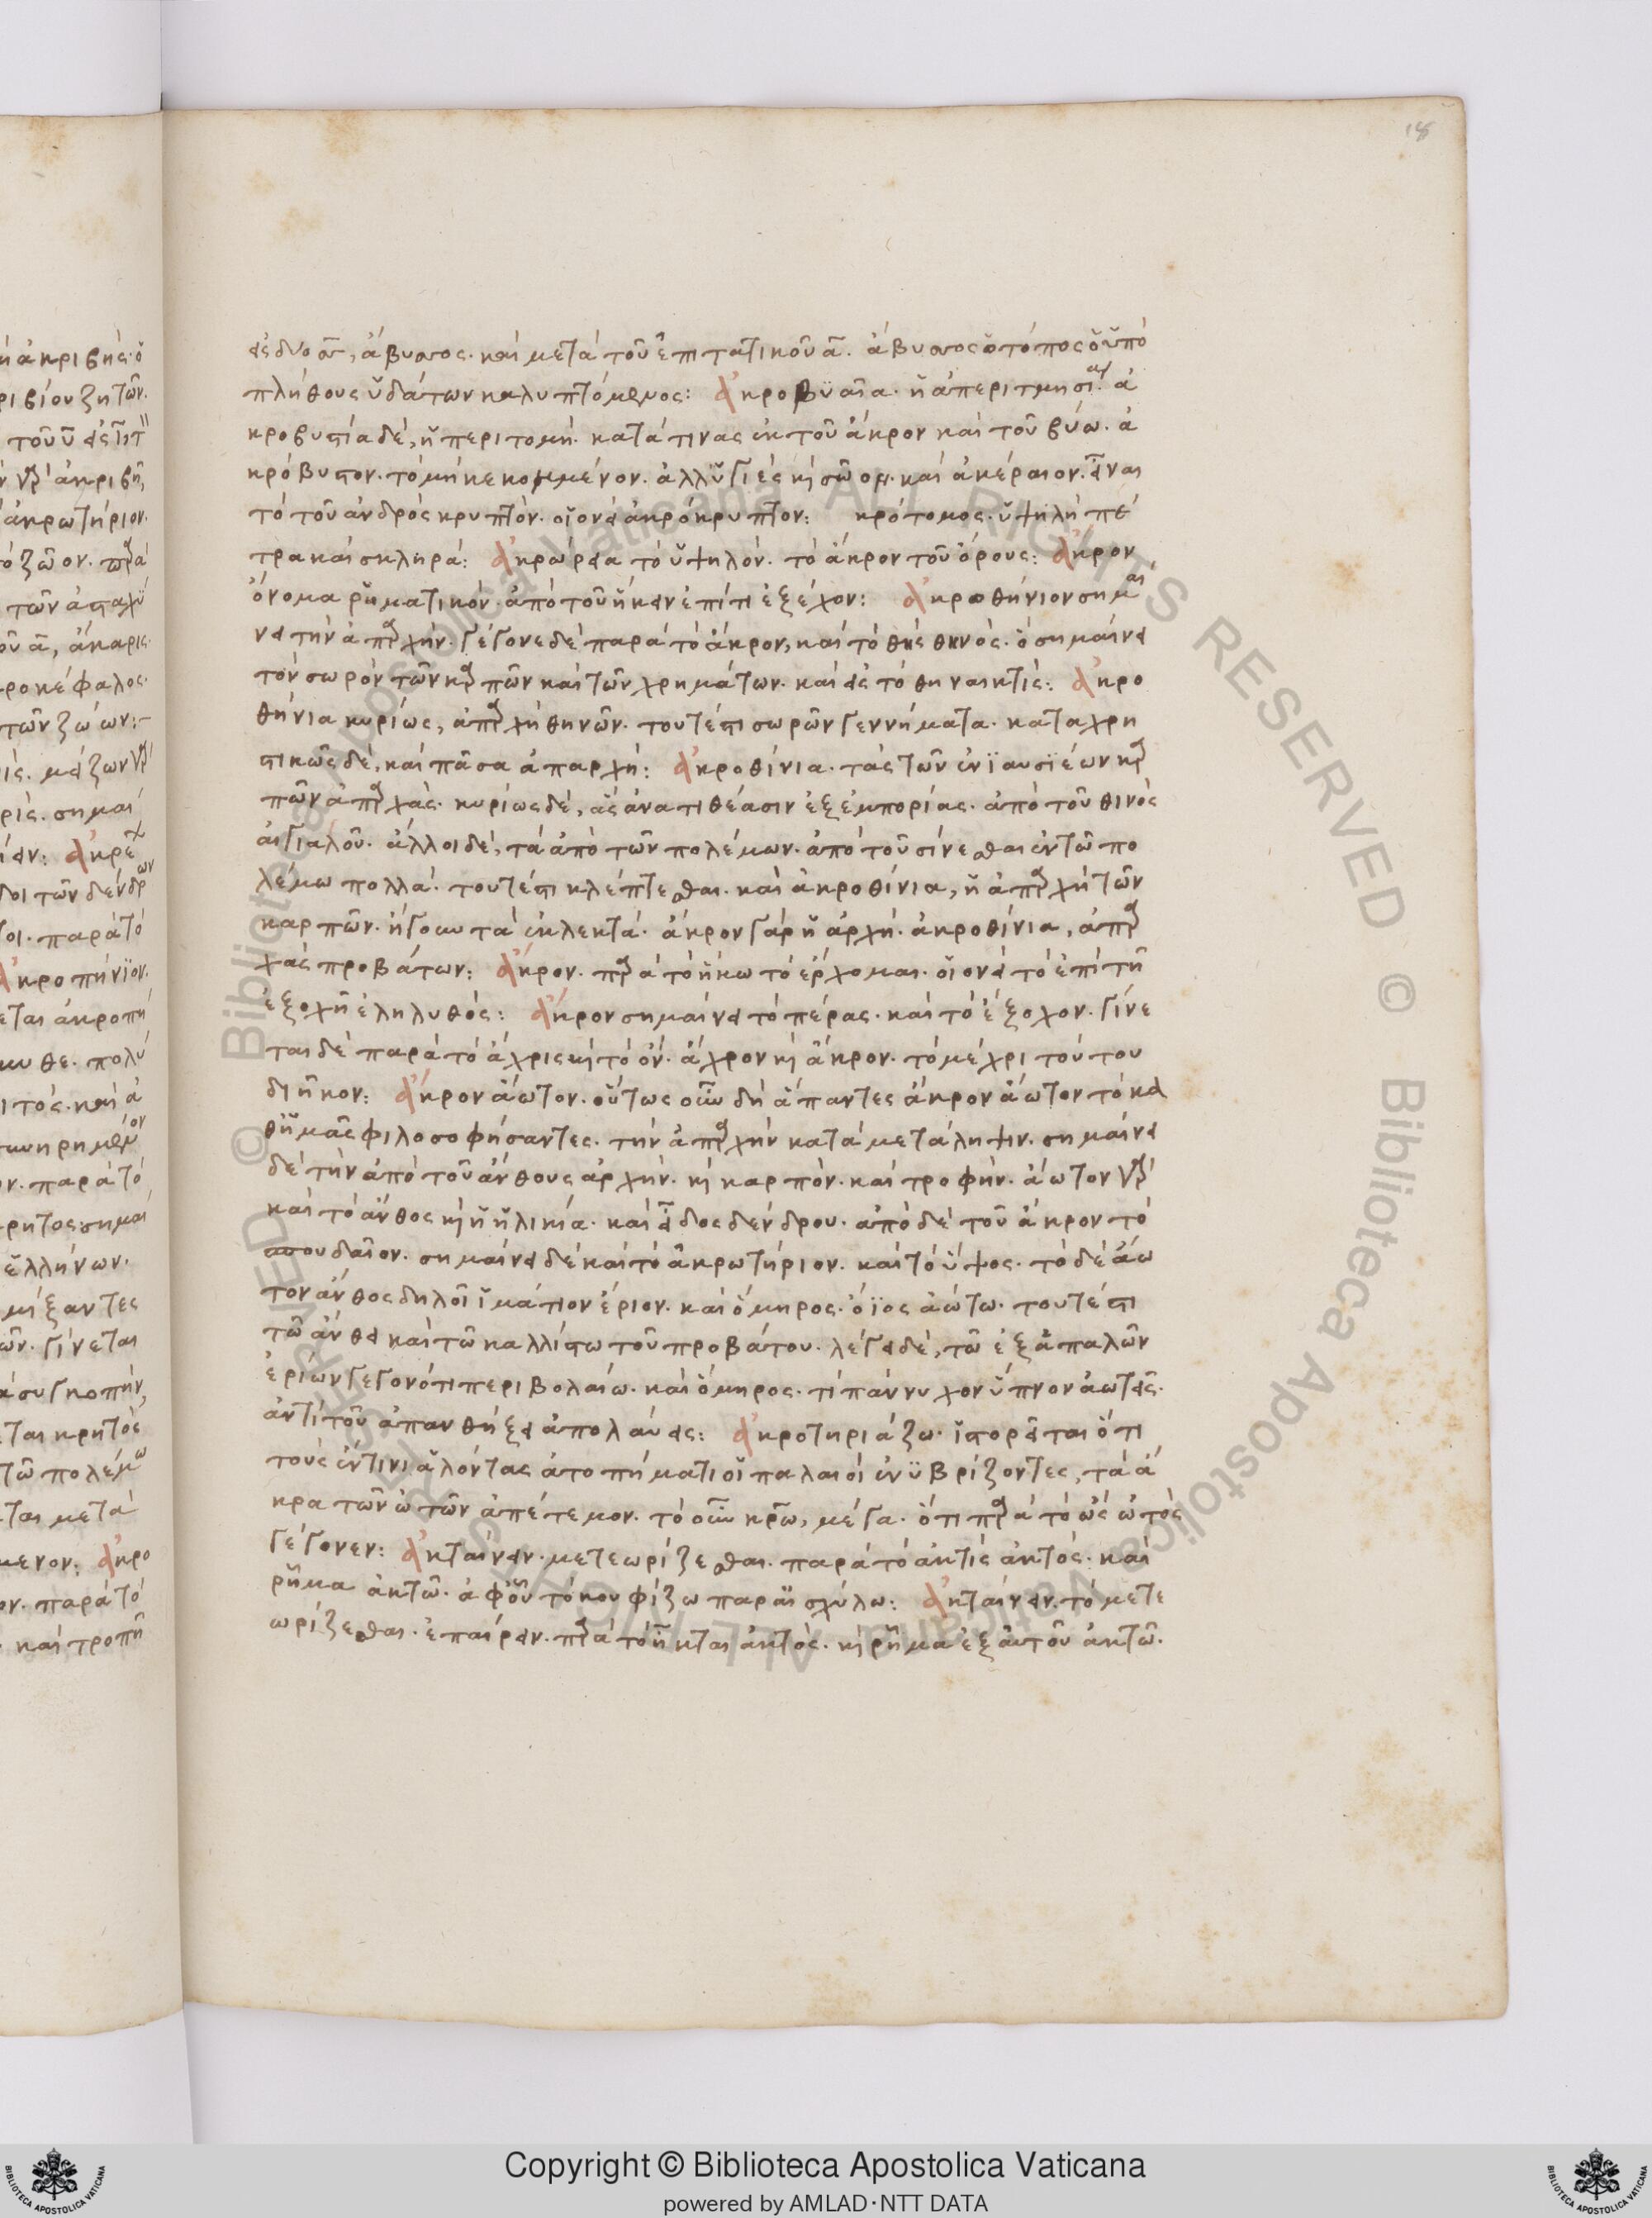 εἰς δύο σσ, ἄβυσσος. καὶ μετὰ τοῦ ἐπιτατικοῦ α. ἄβυσσος ὁ τόπος ὁ ὑπὸ
πλήθους ὑδάτων καλυπτόμενος: ἀκροβυστία. ἡ ἀπεριτμησία. ἀ
κροβυστία δέ, ἡ περιτομή. κατά τινας ἐκ τοῦ ἄκρον καὶ τοῦ βύω. ἀ
κρόβυστον. τὸ μὴ κεκομμένον. ἀλλ' ὑγιὲς καὶ σῶον. καὶ ἀκέραιον. εἶναι
τὸ τοῦ ἀνδρὸς κρυπτόν. οἱονεὶ ἀκρόκρυπτον: κρότομος. ὑψηλὴ πέ
τρα καὶ σκληρά: ἀκρώρεια τὸ ὑψηλόν. τὸ ἄκρον τοῦ ὄρους: ἄκρον
ὄνομα ῥηματικόν. ἀπὸ τοῦ ἥκειν ἐπί τι ἐξέχον: ἀκροθήνιον σημαί
νει τὴν ἀπαρχήν. γέγονε δὲ παρὰ τὸ ἄκρον, καὶ τὸ θὴς θηνός. ὃ σημαίνει
τὸν σωρὸν τῶν καρπῶν καὶ τῶν χρημάτων. καὶ εἰς τὸ θηναικτίς: ἀκρο
θήνια κυρίως, ἀπαρχὴ θηνῶν. τουτέστι σωρῶν γεννήματα. καταχρη
στικῶς δέ, καὶ πᾶσα ἀπαρχή: ἀκροθίνια. τὰς τῶν ἐνιαυσιέων καρ
πῶν ἀπαρχάς. κυρίως δέ, ἃς ἀνατιθέασιν ἐξ ἐμπορίας. ἀπὸ τοῦ θινὸς
αἰγιαλοῦ. ἄλλοι δέ, τὰ ἀπὸ τῶν πολέμων. ἀπὸ τοῦ σίνεσθαι ἐν τῷ πο
λέμω πολλά. τουτέστι κλέπτεσθαι. καὶ ἀκροθίνια, ἡ ἀπαρχὴ τῶν
καρπῶν. ἤγουν τὰ ἐκλεκτά. ἄκρον γὰρ ἡ ἀρχή. ἀκροθίνια, ἀπαρ
χὰς προβάτων: ἄκρον. παρὰ τὸ ἥκω τὸ ἔρχομαι. οἱονεὶ τὸ ἐπὶ τῇ
ἐξοχῇ ἐληλυθός: ἄκρον σημαίνει τὸ πέρας. καὶ τὸ ἔξοχον. γίνε
ται δὲ παρὰ τὸ ἄχρις καὶ τὸ ὄν. ἄχρον καὶ ἄκρον. τὸ μέχρι τούτου
διῆκον: ἄκρον ἄωτον. οὕτως οὖν δὴ ἅπαντες ἄκρον ἄωτον τὸ κα
θ' ἡμᾶς φιλοσοφήσαντες. τὴν ἀπαρχὴν κατὰ μετάληψιν. σημαίνει
δὲ τὴν ἀπὸ τοῦ ἄνθους ἀρχήν. καὶ καρπόν. καὶ τροφήν. ἄωτον γὰρ
καὶ τὸ ἄνθος καὶ ἡ ἡλικία. καὶ εἶδος δένδρου. ἀπὸ δὲ τοῦ ἄκρον τὸ
σπουδαῖον. σημαίνει δὲ καὶ τὸ ἀκρωτήριον. καὶ τὸ ὕψος. τὸ δὲ ἄω
τον ἄνθος δηλοῖ ἱμάτιον ἔριον. καὶ ὅμηρος. ὄϊος ἀώτω. τουτέστι
τῶ ἄνθει καὶ τῶ καλλίστω τοῦ προβάτου. λέγει δέ, τῶ ἐξ ἁπαλῶν
ἐρίων γεγονότι περιβολαίω. καὶ ὅμηρος. τί πάννυχον ὕπνον ἀωτεῖς.
ἀντὶ τοῦ ἀπανθήζει ἀπολαύεις: ἀκροτηριάζω. ἱστορεῖται ὅτι
τοὺς ἔν τινι ἁλόντας ἀτοπήματι οἱ παλαιοὶ ἐνυβρίζοντες, τὰ ἄ
κρα τῶν ὤτων ἀπέτεμον. τὸ οὖν κρω, μέγα. ὅτι παρὰ τὸ ὦς ὠτὸς
γέγονεν: ἀκταίνειν. μετεωρίζεσθαι. παρὰ τὸ ἀκτὶς ἀκτός. καὶ
ῥῆμα ἀκτῶ. ἀφ' οὗ τὸ κουφίζω παρ' αἰσχύλω: ἀκταίνειν. τὸ μετε
ωρίζεσθαι. ἐπαίρειν. παρὰ τὸ ἦκται ἀκτός. καὶ ῥῆμα ἐξ αὐτοῦ ἀκτῶ.
Copyright © Biblioteca Apostolica Vaticana
powered by AMLAD·NTT DATA